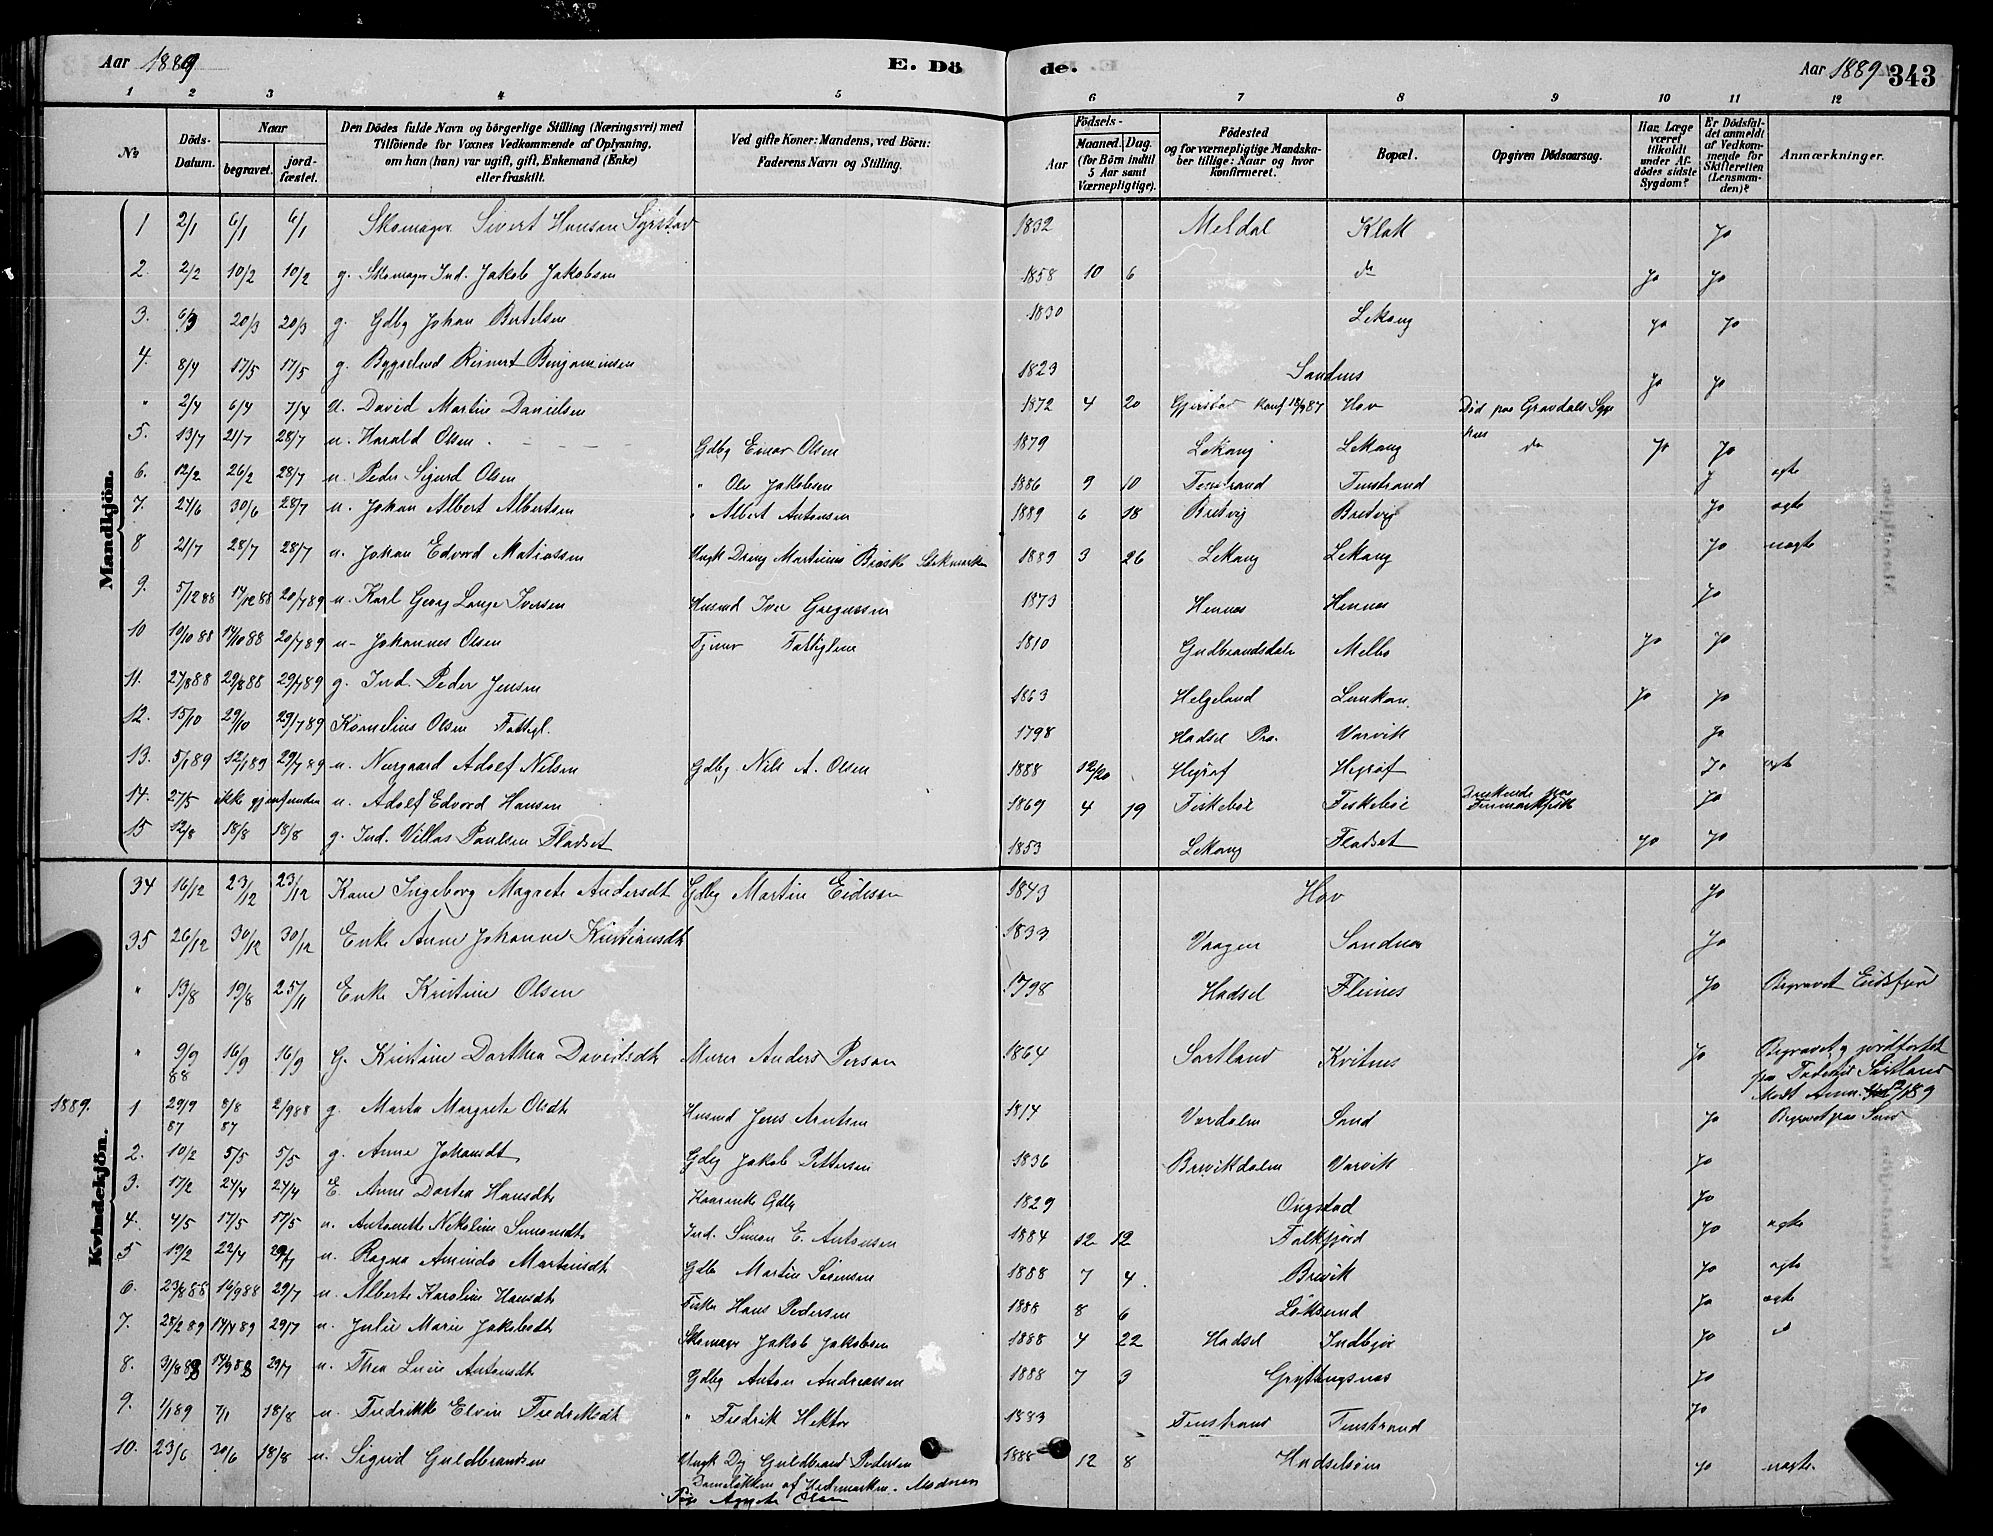 Aar 1889 E. Dö de. Aar 1889 343
1 2 3 4 5 6 7 8 9 10 11 12
No Döds-Datum. Naar begravet. jord-fæstet. Den Dödes fulde Navn og börgerlige Stilling (Næringsvei) med Tilföiende for Voxnes Vedkommende af Oplysning, om han (hun) var ugift, gift, Enkemand (Enke) eller fraskilt. Ved gifte Koner: Mandens, ved Börn: Faderens Navn og Stilling. Födsels- Aar Maaned. Dag. (for Börn indtil 5 Aar samt Værnepligtige). Födested og for værnepligtige Mandskaber tillige: Naar og hvor konfirmeret. Bopæl. Opgiven Dödsaarsag. Har Læge været tilkaldt under Afdödes sidste Sygdom? Er Dödsfaldet anmeldt af Vedkommende for Skifteretten (Lensmanden)? Anmærkninger.
Mandkjön.
1 2/1 6/1 6/1 Skomager Sivert Hansen Syrstad 1832 Meldal Klak Jo
2. 2/2 10/2 10/2 g. Skomager Ind. Jakob Jakobsen 1858 10 6 do Jo Jo
3. 6/3 20/3 20/3 g. Gdbg Johan Bertelsen 1830 Lekang Jo Jo
4. 8/4 17/5 17/5 g. Bygselmd Reinert Benjaminsen 1823 Sandnes Jo Jo
" 2/4 6/4 7/4 u. David Martin Danielsen 1872 4 20 Gjerstad Konf 18/9 87 Hov Död paa Gravdals Syge hus
5. 13/7 21/7 28/7 u. Harald Olsen Gdbg Einar Olsen 1879 Lekang Lekang do Jo Jo
6. 12/2 26/2 28/7 u. Peder Sigurd Olsen " Ole Jakobsen 1886 9 10 Fenstrand Fenstrand J ægte
7. 24/6 30/6 28/7 u. Johan Albert Albertsen " Albert Antonsen 1889 6 18 Bretvig Bretvig Jo ægte
8 21/7 28/7 28/7 u. Johan Edvard Matiassen Ungk Dreng Martinus 1889 3 26 Lekang Lekang Jo uægte
9. 5/12 88 14/12 88 20/7 89 u. Karl Georg Lange Iversen Husmd Iver Gregussen 1873 Hennes Hennes Jo
10 10/10 88 14/10 88 20/7 89 u- Johannes Olsen Tjener Fattiglem 1810 Gudbrandsdalen Melbo Jo Jo
11. 27/8 88 29/8 88 29/7 89 g. Ind. Peder Jensen 1863 Helgeland Lunkan Jo Jo
12. 15/10 29/10 29/7 89 Kornelius Olsen Fattigl. 1798 Hadsel Pre. Varvik Jo
13. 5/1 89 12/1 89 29/7 89 u. Norgaard Adolf Nilsen Gdbg. Nils A. Olsen 1888 12/20 Hegröf Hegröf Jo ægte
14. 27/5 ikke gjenfunden u. Adolf Edvard Hansen 1869 4 19 Fiskeböl Fiskeböl Druknede paa Finmarksfisk Jo
15 12/8 18/8 18/8 g. Ind. Villas Paulsen Fladset 1853 Lekang Fladset Jo Jo
Kvindekjön.
34 16/12 23/12 23/12 Kone Ingeborg Magrete Andersdt Gdbg Martin Eidissen 1843 Hov Jo
35 26/12 30/12 30/12 Enke Anne Johanne Kristiansdt 1833 Vaagen Sandnes Jo
" 13/8 19/8 25/11 Enke Kristine Olsen 1798 Hadsel Fleines Jo Begravet Eidsfjor
" 9/9 88 16/9 16/9 G. Kristine Dorthea Davidsdt Murer Anders Person 1864 Sortland Kvitnes Jo Begravet og jordfæstet paa Sortland
1889. 1 29/9 87 8/8 87 2/9 88 g. Marta Margrete Olsdt Husmd Jens Arntsen 1814 Værdalen Sand Jo Begravet paa Sand
2. 10/2 5/5 5/5 g. Anne Johansdt Gdbg Jakob Pettersen 1836 Brevikdalen Varvik Jo
3. 17/2 24/4 24/4 E. Anne Dortea Hansdt Kaarenke Gdbg 1829 Ongstad Jo
4. 4/5 17/5 17/5 u. Antonette Nikoline Simonsdt Ind. Simon E. Antonsen 1884 12 12 Falkfjord Jo ægte
5 19/2 22/4 29/7 u. Ragna Aminda Martinsdt Gdb Martin Sörensen 1888 7 4. Brevik Jo ægte
6. 23/8 88 16/9 88 29/7 u. Alberte Karoline Hansdt Fisker Hans Pedersen 1888 8 6 Löksund Jo ægte
7. 28/2 89 14/4 89 29/7 u. Julie Marie Jakobsdt Skomager Jakob Jakobsen 1888 4 22 Hadsel Indbjör Jo d
8. 3/8 88 14/9 88 29/7 u. Thea Lucie Antonsdt Gdbg Anton Andreassen 1888 7 3 Grytingsnes Jo
9. 1/1 89 7/1 18/8 u. Fredrikke Elvine Fredriksdt " Fredrik Hektor 1883 Fenstrand Fenstrand Jo
10. 23/6 30/6 18/8 u. Sigrid Guldbrandsen Ungk Dg Guldbrand Pedersen 1888 12 8 Hadselöen Jo uægte.
af Hedemarken. Moderen
Pige Agnete Olsen